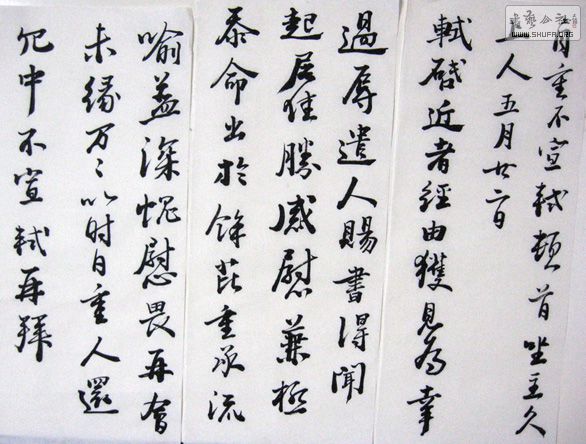 自重不宣軾頓首坐主久
上人五月廿二日
軾啓近者經由獲見為幸
過辱遣人賜書得聞
起居佳勝感慰兼極
忝命出於餘芘重承流
喻益深愧慰畏再會
未緣万々以时自重人還
冗中不宣軾再拜
書藝公社
WWW.SHUFA.ORG